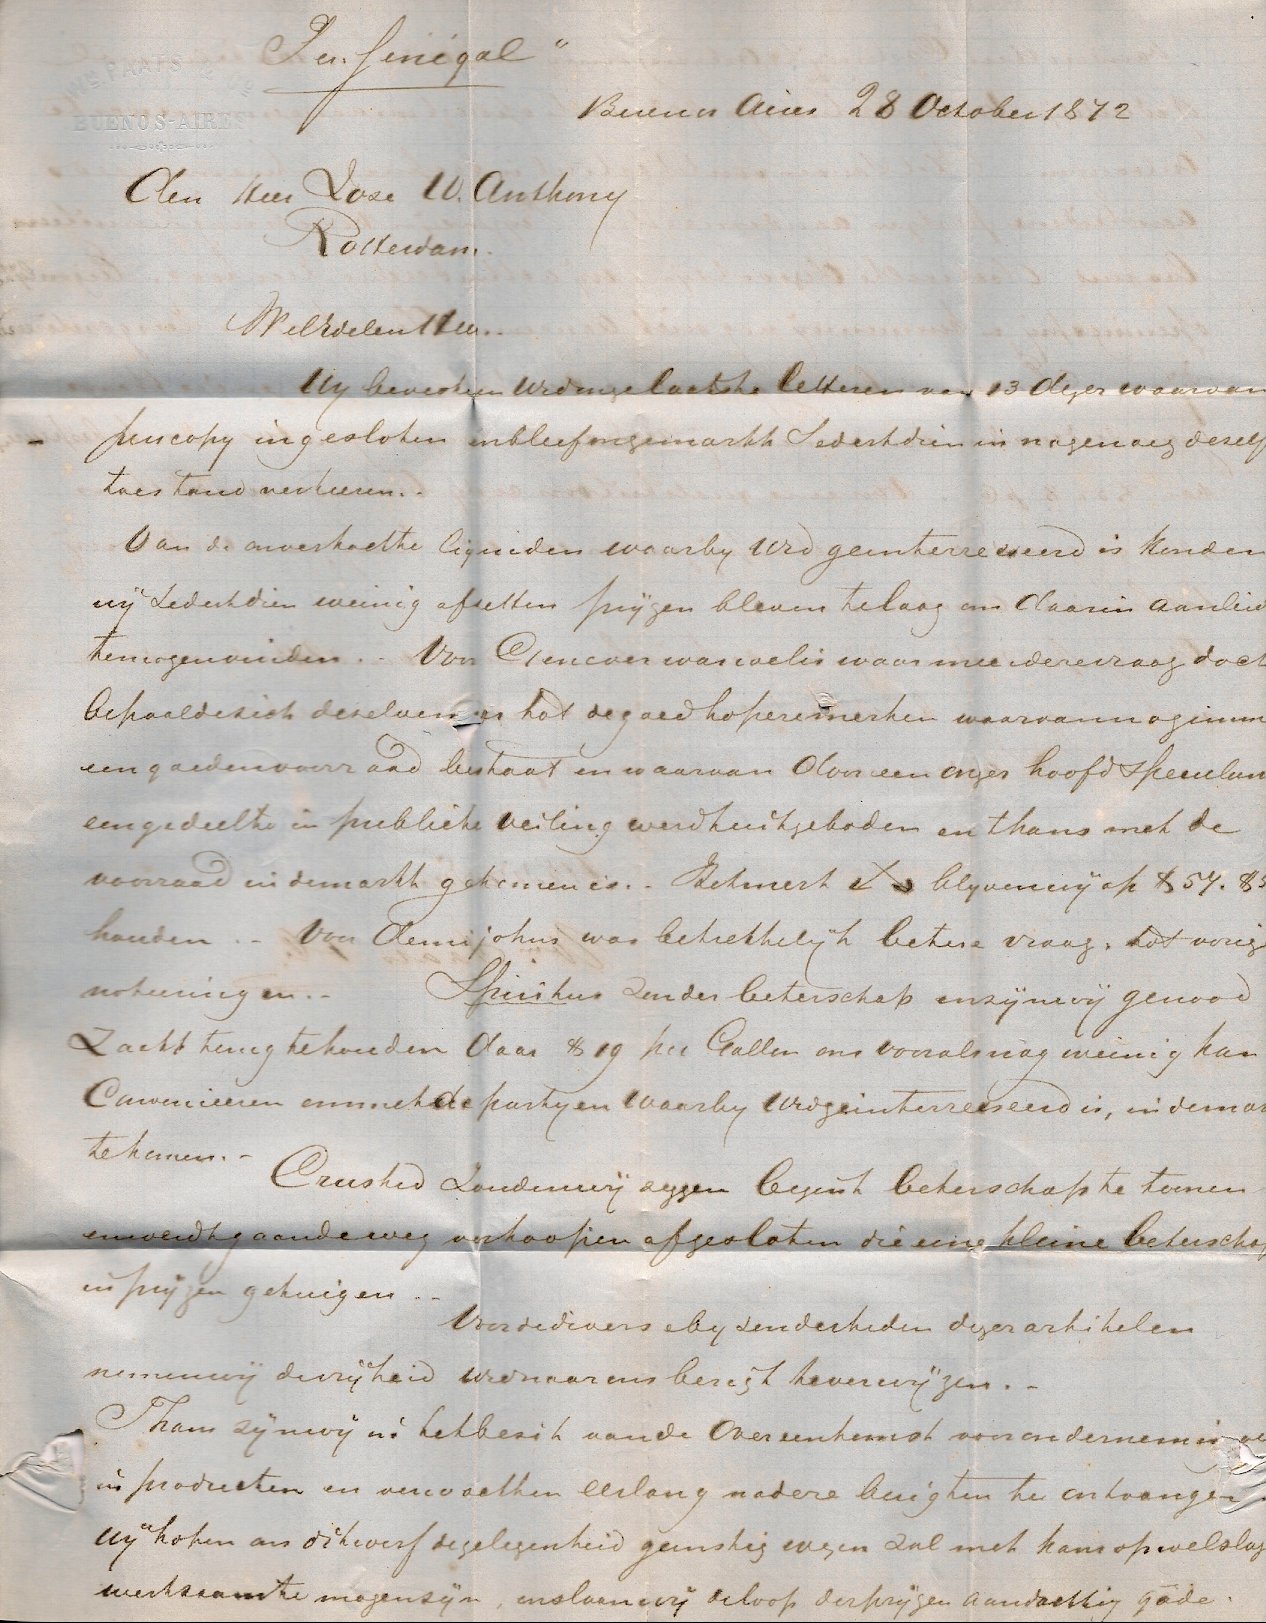 Per "Sénégal"
Wm PAATS
BUENOS-AIRES
Buenos Aires 28 October 1872
Den Heer Jose W. Anthony
Rotterdam.
WelEdelen Heer.
Wy bevestigen UEd onze laatste letteren van 13 dezer waarvan
perscopy ingesloten en bleef onze markt Sedertdien in nagenoeg deself
toestand verkeeren. -
Van de onverkochte liquiden waarby UEd geinterresseerd is konden
wÿ sedertdien weinig afsetten prÿzen bleven te laag om daarin aanleid
te mogen vinden. - Voor Genever was welis waar meerdere vraag doch
bepaalde sich deselve meer tot de goedkopere merken waarvan nog immer
een goeden voorraad bestaat en waarvan door een onzer hoofd speculan
een gedeelte in publieke veiling werdt uitgeboden en thans met de
voorraad in de markt gekomen is. - Het merk blyven wÿ op $ 57.
houden. - Voor Demijohns was betrekkelÿk betere vraag, tot vorige
noteeringen. - Spiritus zonder beterschap en zÿn wÿ genood
Zaakt terug te houden daar $ 19 per Gallon ons vooralsnog weinig kan
Convenieeren om met de partyen waarby UEd geinterresseerd is, in de mar
te komen. -
Crushed zouden wÿ zeggen begint beterschap te toonen
en werdt gaandeweg verkoopen afgesloten die eene kleine beterschap
in prÿzen getuigen. -
Voor de diverse byzonderheden dezer artikelen
nemen wÿ de vrÿheid UEd naar ons berigt te verwÿzen. -
Thans zÿn wÿ in het besit van de Overeenkomst voor onderneming
in producten en verwachten eerlang nadere berigten te ontvangen.
Wÿ hopen ons dikwerf de gelegenheid gunstig wezen zal met kans op welslag
werkzaam te mogen zÿn, en slaan wÿ de loop der prÿzen aandachtig gade.